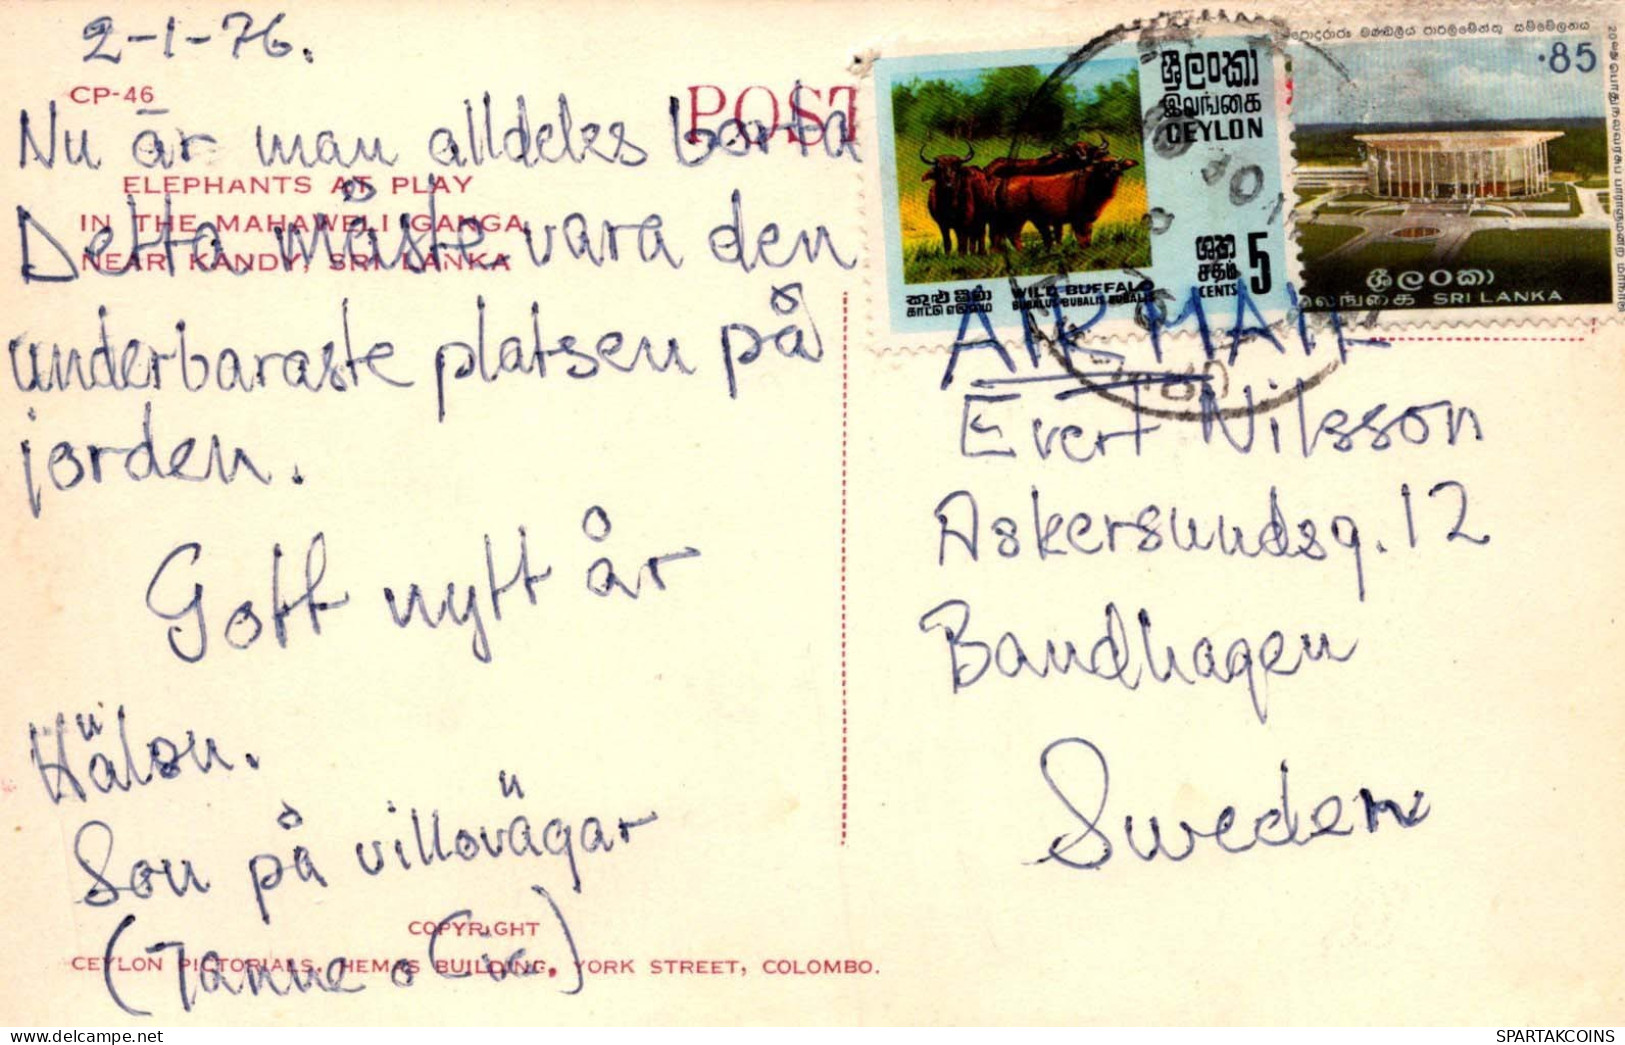 2-1-76.
CP-46
POST
Nu är man alldeles borta
ELEPHANTS AT PLAY
IN THE MAHAWELI GANGA
NEAR KANDY, SRI LANKA
Detta måste vara den
underbaraste platsen på
jorden.
Gott nytt år
Hälsn.
Son på villovägar
(Janne o Cic)
COPYRIGHT
CEYLON PICTORIALS, HEMAS BUILDING, YORK STREET, COLOMBO.
ශ්‍රී ලංකා
இலங்கை
CEYLON
ශත
சதம்
CENTS 5
WILD BUFFALO
BUBALUS BUBALIS BUBALIS
.85
ශ්‍රී ලංකා
இலங்கை SRI LANKA
AIR MAIL
Evert Nilsson
Askersundsg. 12
Bandhagen
Sweden
SPARTAKCOINS